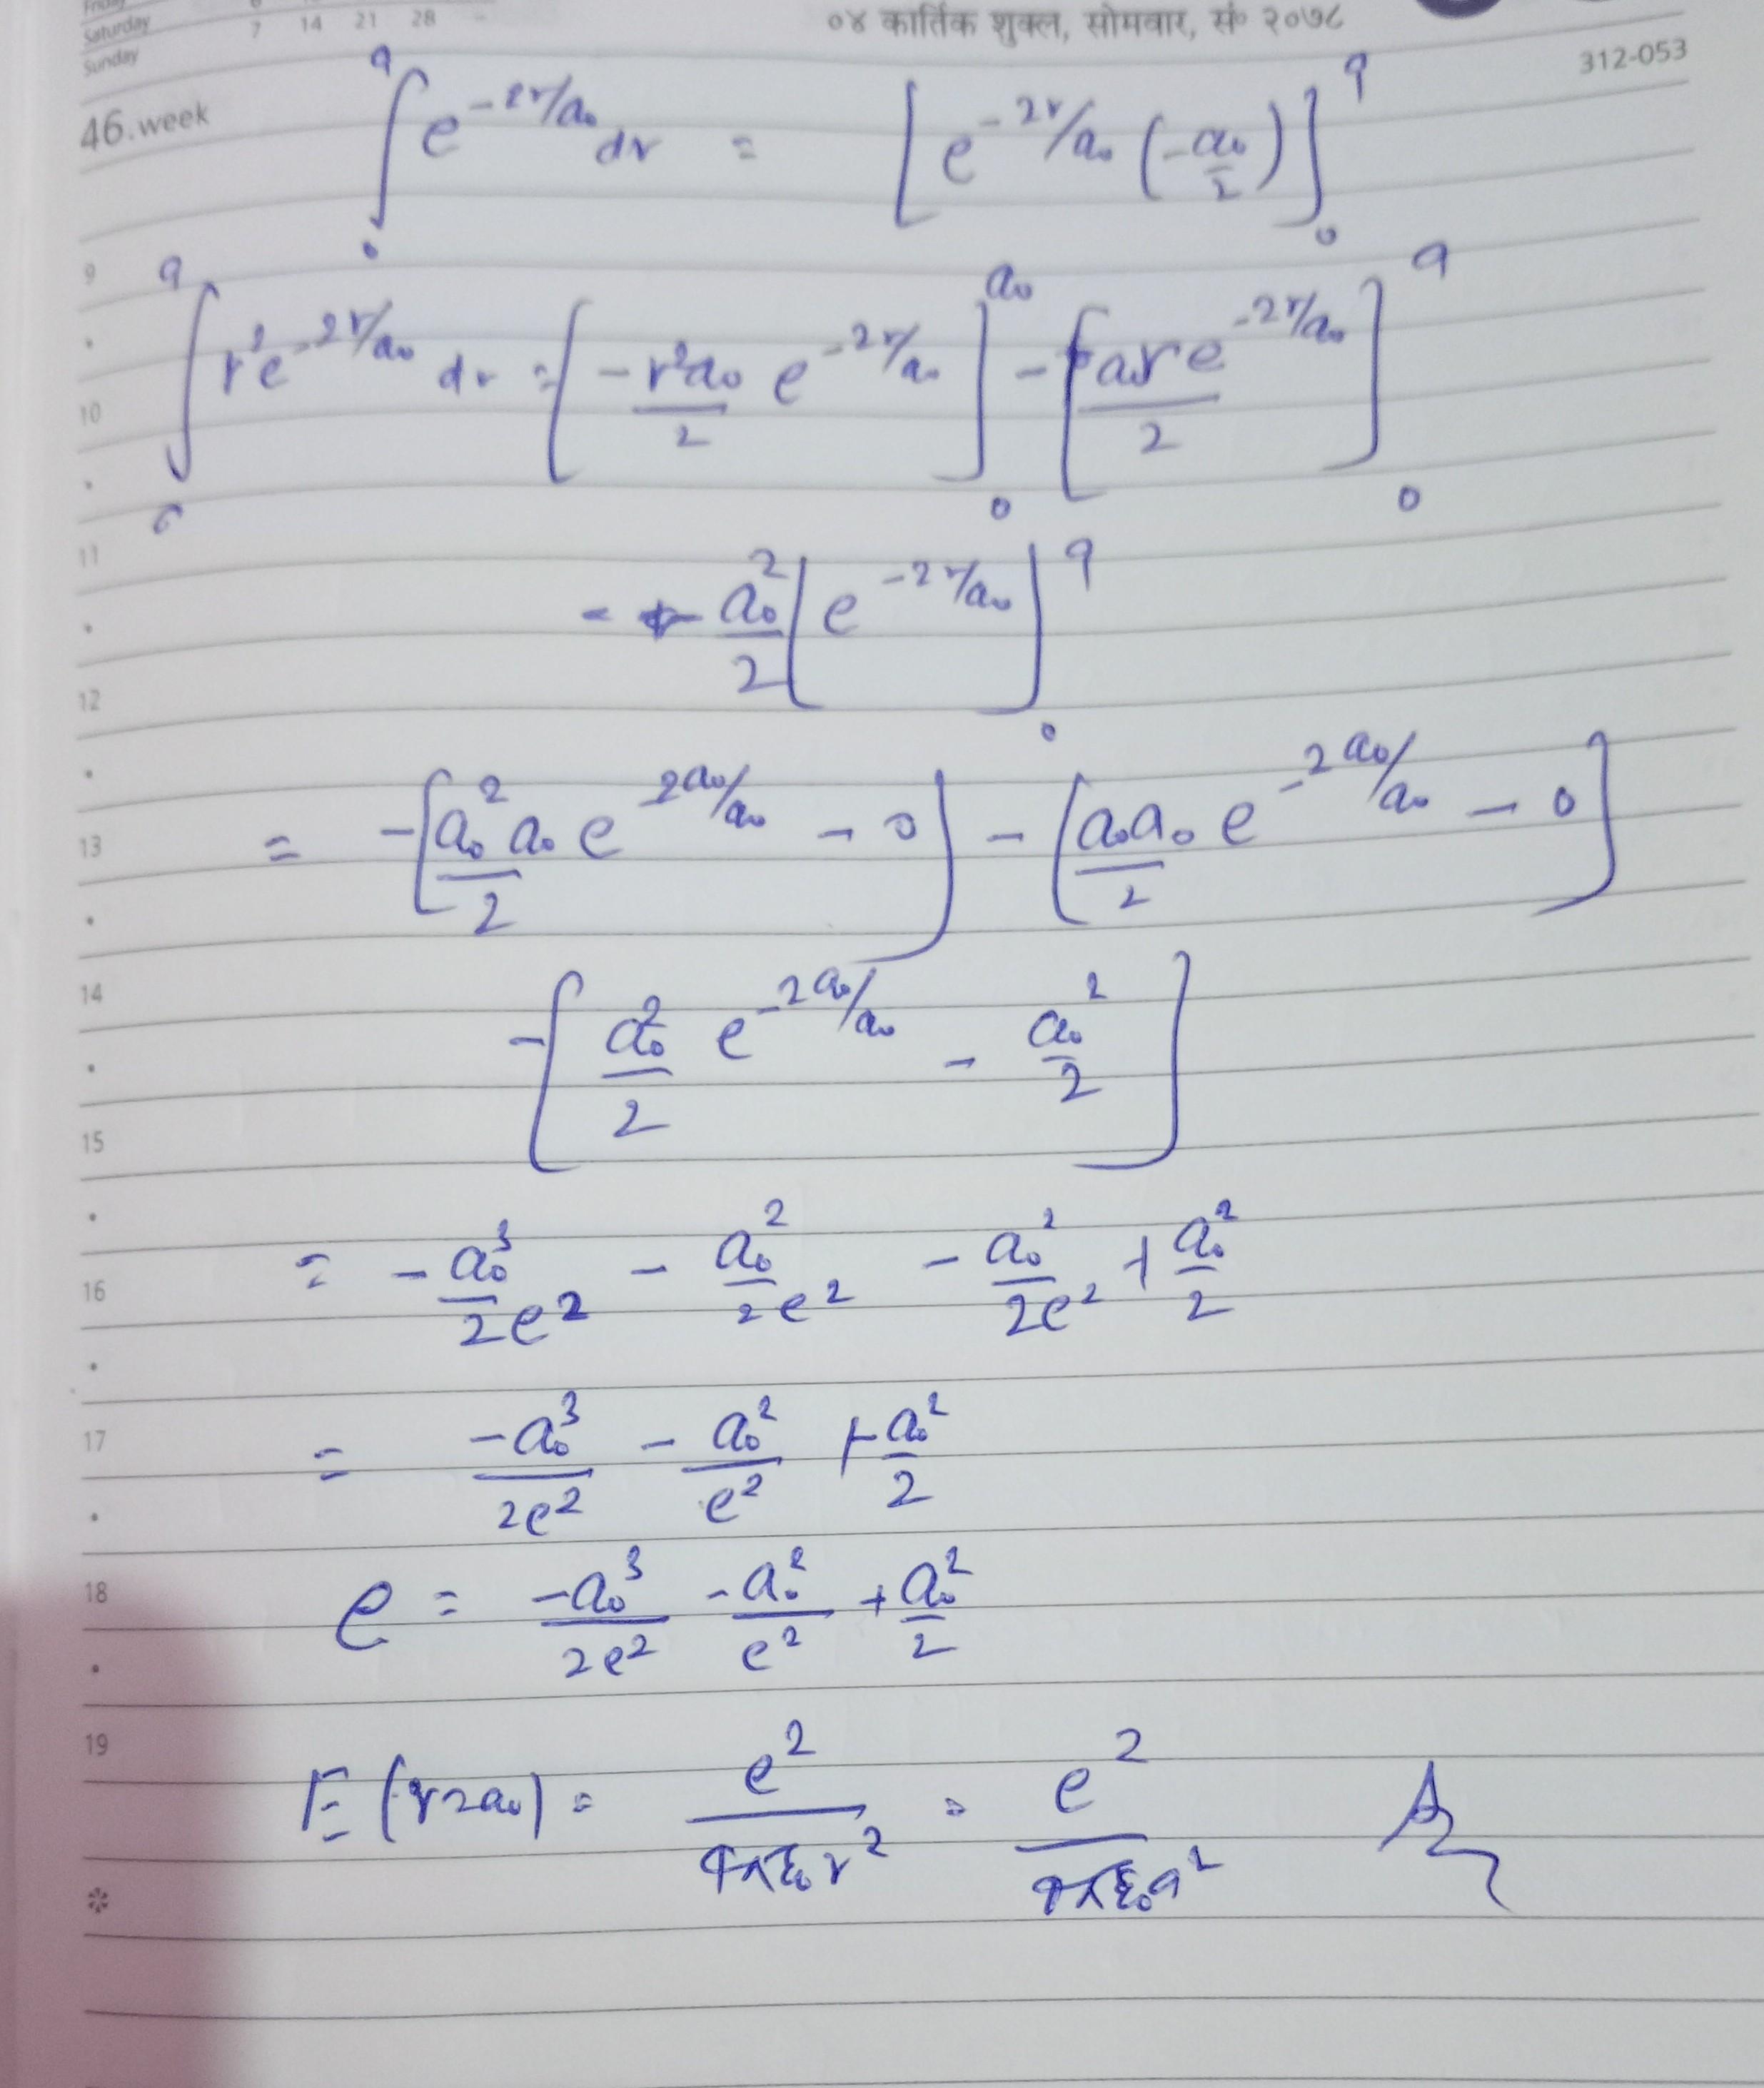 Friday
Saturday 7 14 21 28
Sunday
०४ कार्तिक शुक्ल, सोमवार, सं० २०७८
312-053
46.week
∫₀^a e^{-2r/a₀} dr = [e^{-2r/a₀} (-a₀/2)]₀^a
9
∫₀^a r²e^{-2r/a₀} dr = [-r²a₀/2 e^{-2r/a₀}]₀^{a₀} - [a₀re^{-2r/a₀}/2]₀^a
10
11
- a₀²/2 [e^{-2r/a₀}]₀^a
12
13 = -[a₀²a₀/2 e^{2a₀/a₀} - 0] - [a₀a₀/2 e^{-2a₀/a₀} - 0]
14 -[a₀²/2 e^{-2a₀/a₀} - a₀²/2]
15
16 = -a₀³/2e² - a₀²/2e² - a₀²/2e² + a₀²/2
17 = -a₀³/2e² - a₀²/e² + a₀²/2
18 e = -a₀³/2e² - a₀²/e² + a₀²/2
19
E(r=a₀) = e²/4πε₀r² = e²/4πε₀a²